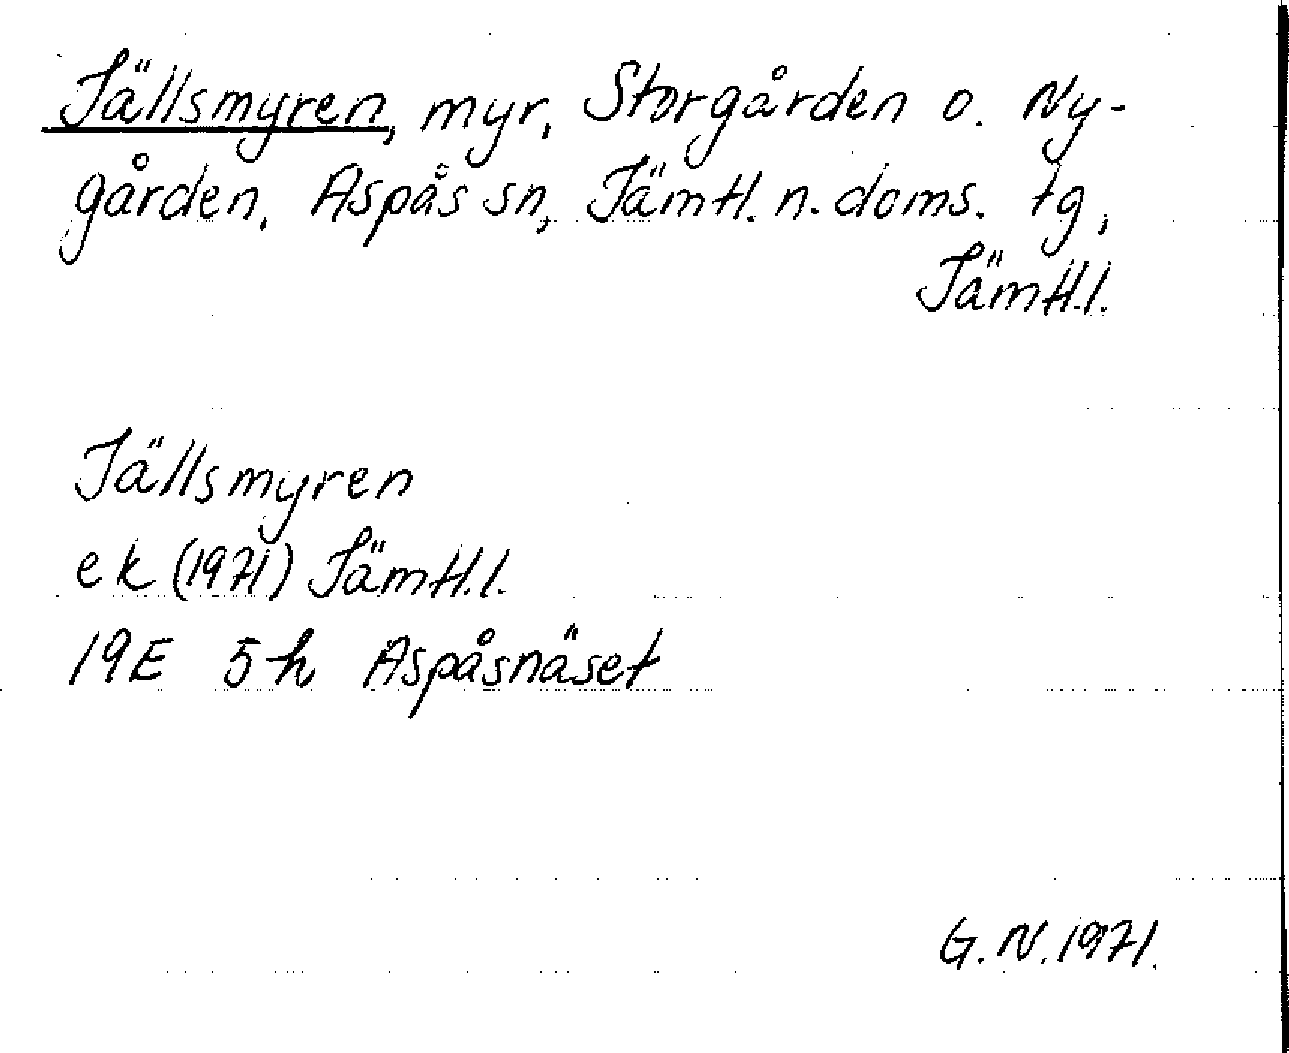 Jällsmyren, myr, Storgården o. Ny-
gården, Aspås sn, Jämtl. n. doms. tg,
Jämtl.l.
Jällsmyren
ek (1971) Jämtl.l.
19E 5h Aspåsnäset
G.N.1971.